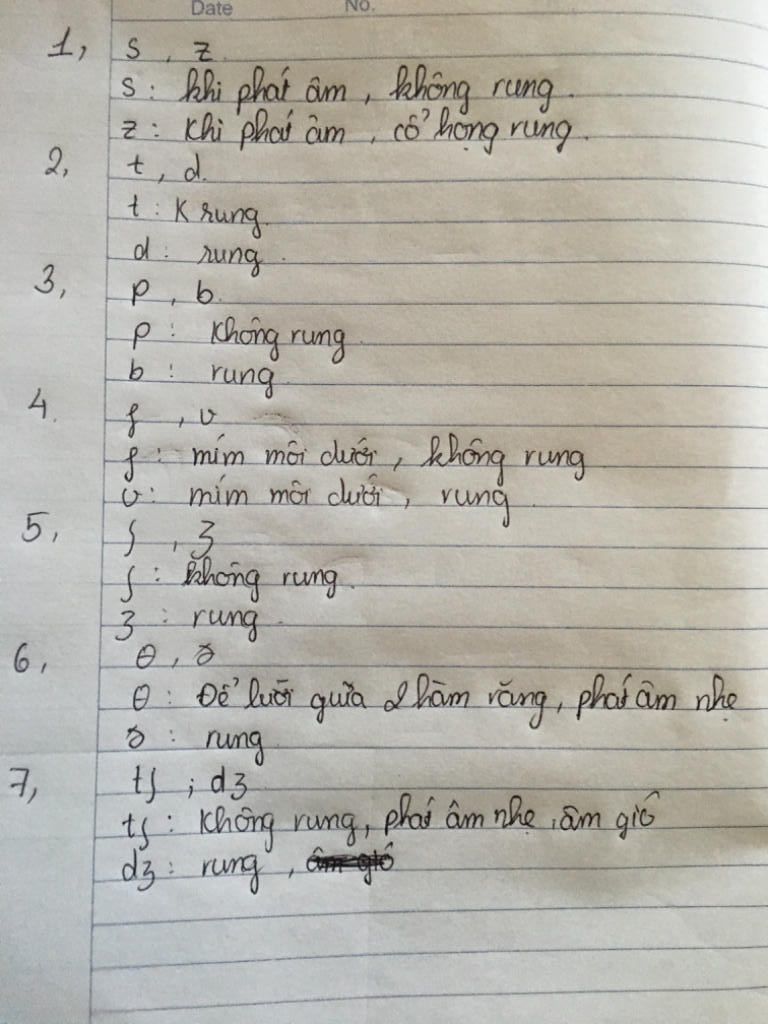 Date No.
1, s , z
s : khi phát âm , không rung .
z : Khi phát âm , cổ họng rung .
2, t , d.
t : K rung
d : rung .
3, p , b.
p : Không rung
b : rung
4. f , v
f : mím môi dưới , không rung
v : mím môi dưới , rung
5, ʃ , ʒ
ʃ : không rung .
ʒ : rung .
6, θ , ð
θ : Để lưỡi giữa 2 hàm răng, phát âm nhẹ
ð : rung
7, tʃ ; dʒ
tʃ : Không rung, phát âm nhẹ , âm gió
dʒ : rung , âm gió